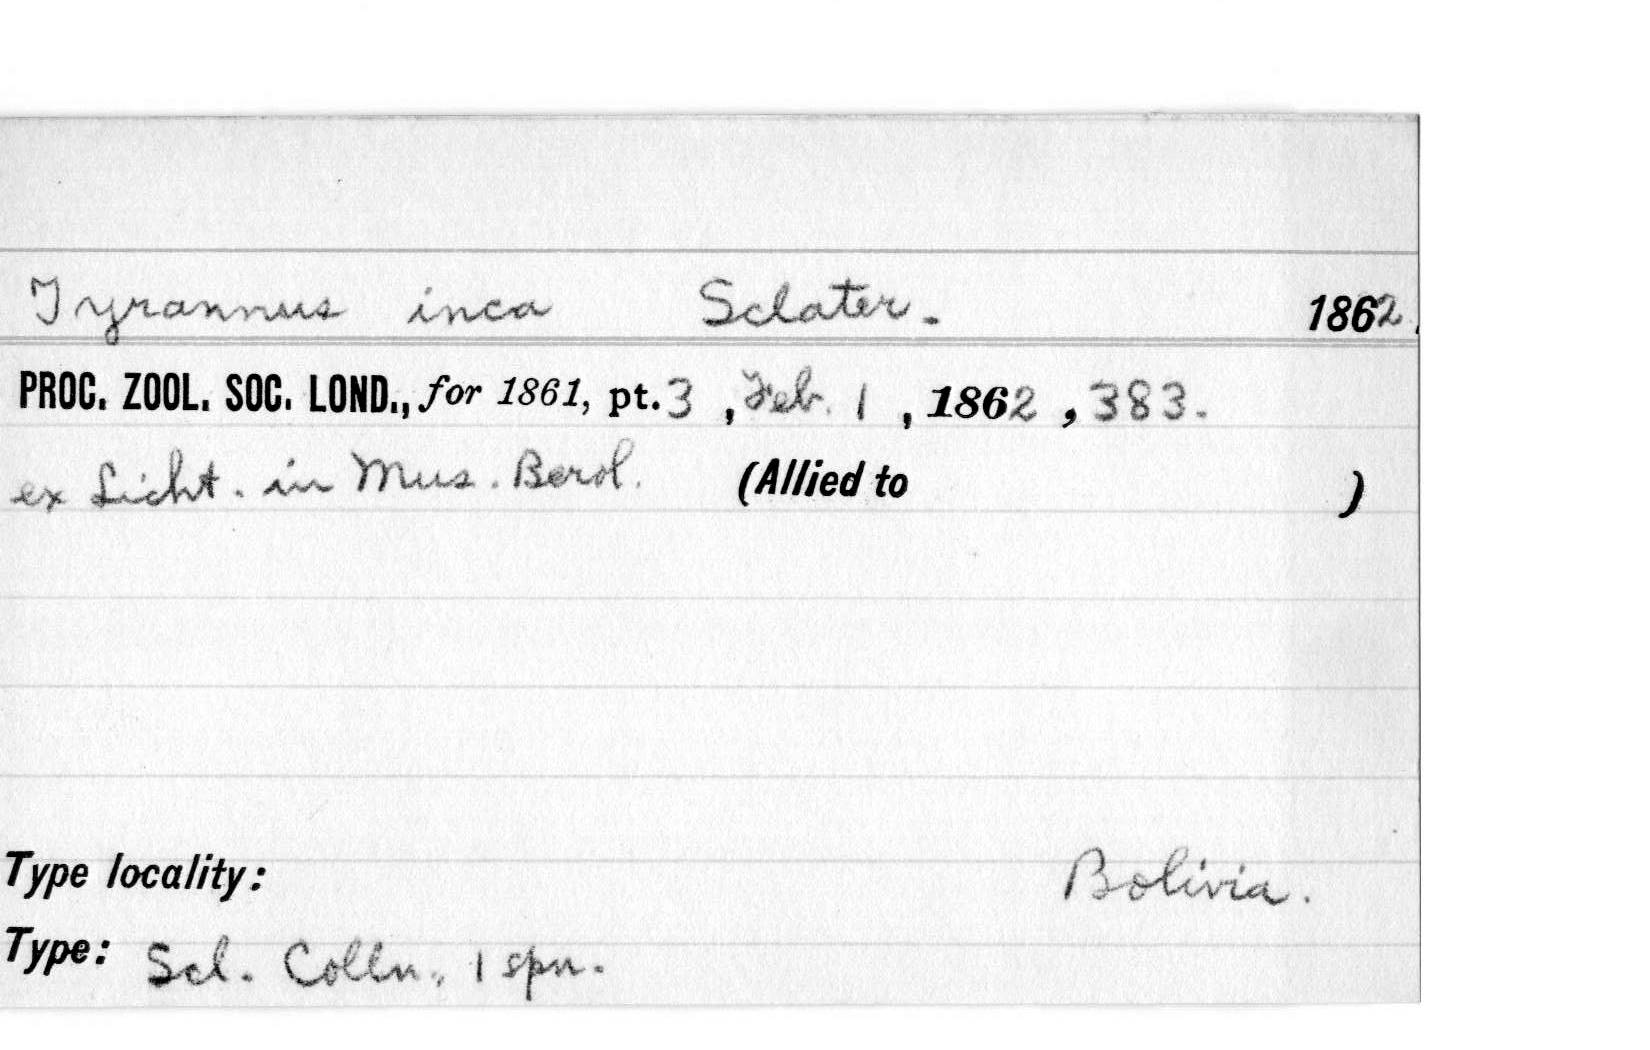 Tyrannus inca Sclater. 1862.
PROC. ZOOL. SOC. LOND., for 1861, pt. 3, Feb. 1, 1862, 383.
ex Licht. in Mus. Berol. (Allied to )
Type locality: Bolivia.
Type: Scl. Colln., 1 spn.